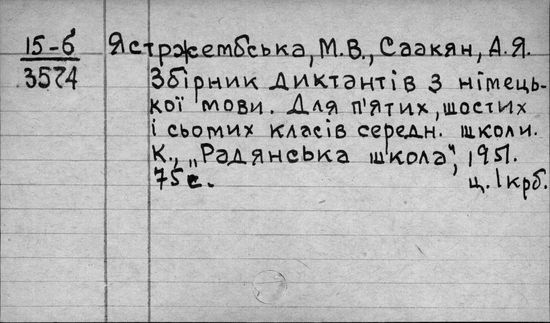 15-б
3574
Ястржембська, М.В., Саакян, А.Я.
Збірник диктантів з німець-
кої мови. Для п'ятих, шостих
і сьомих класів середн. школи.
К., „Радянська школа", 1951.
75 с. ц. 1 крб.